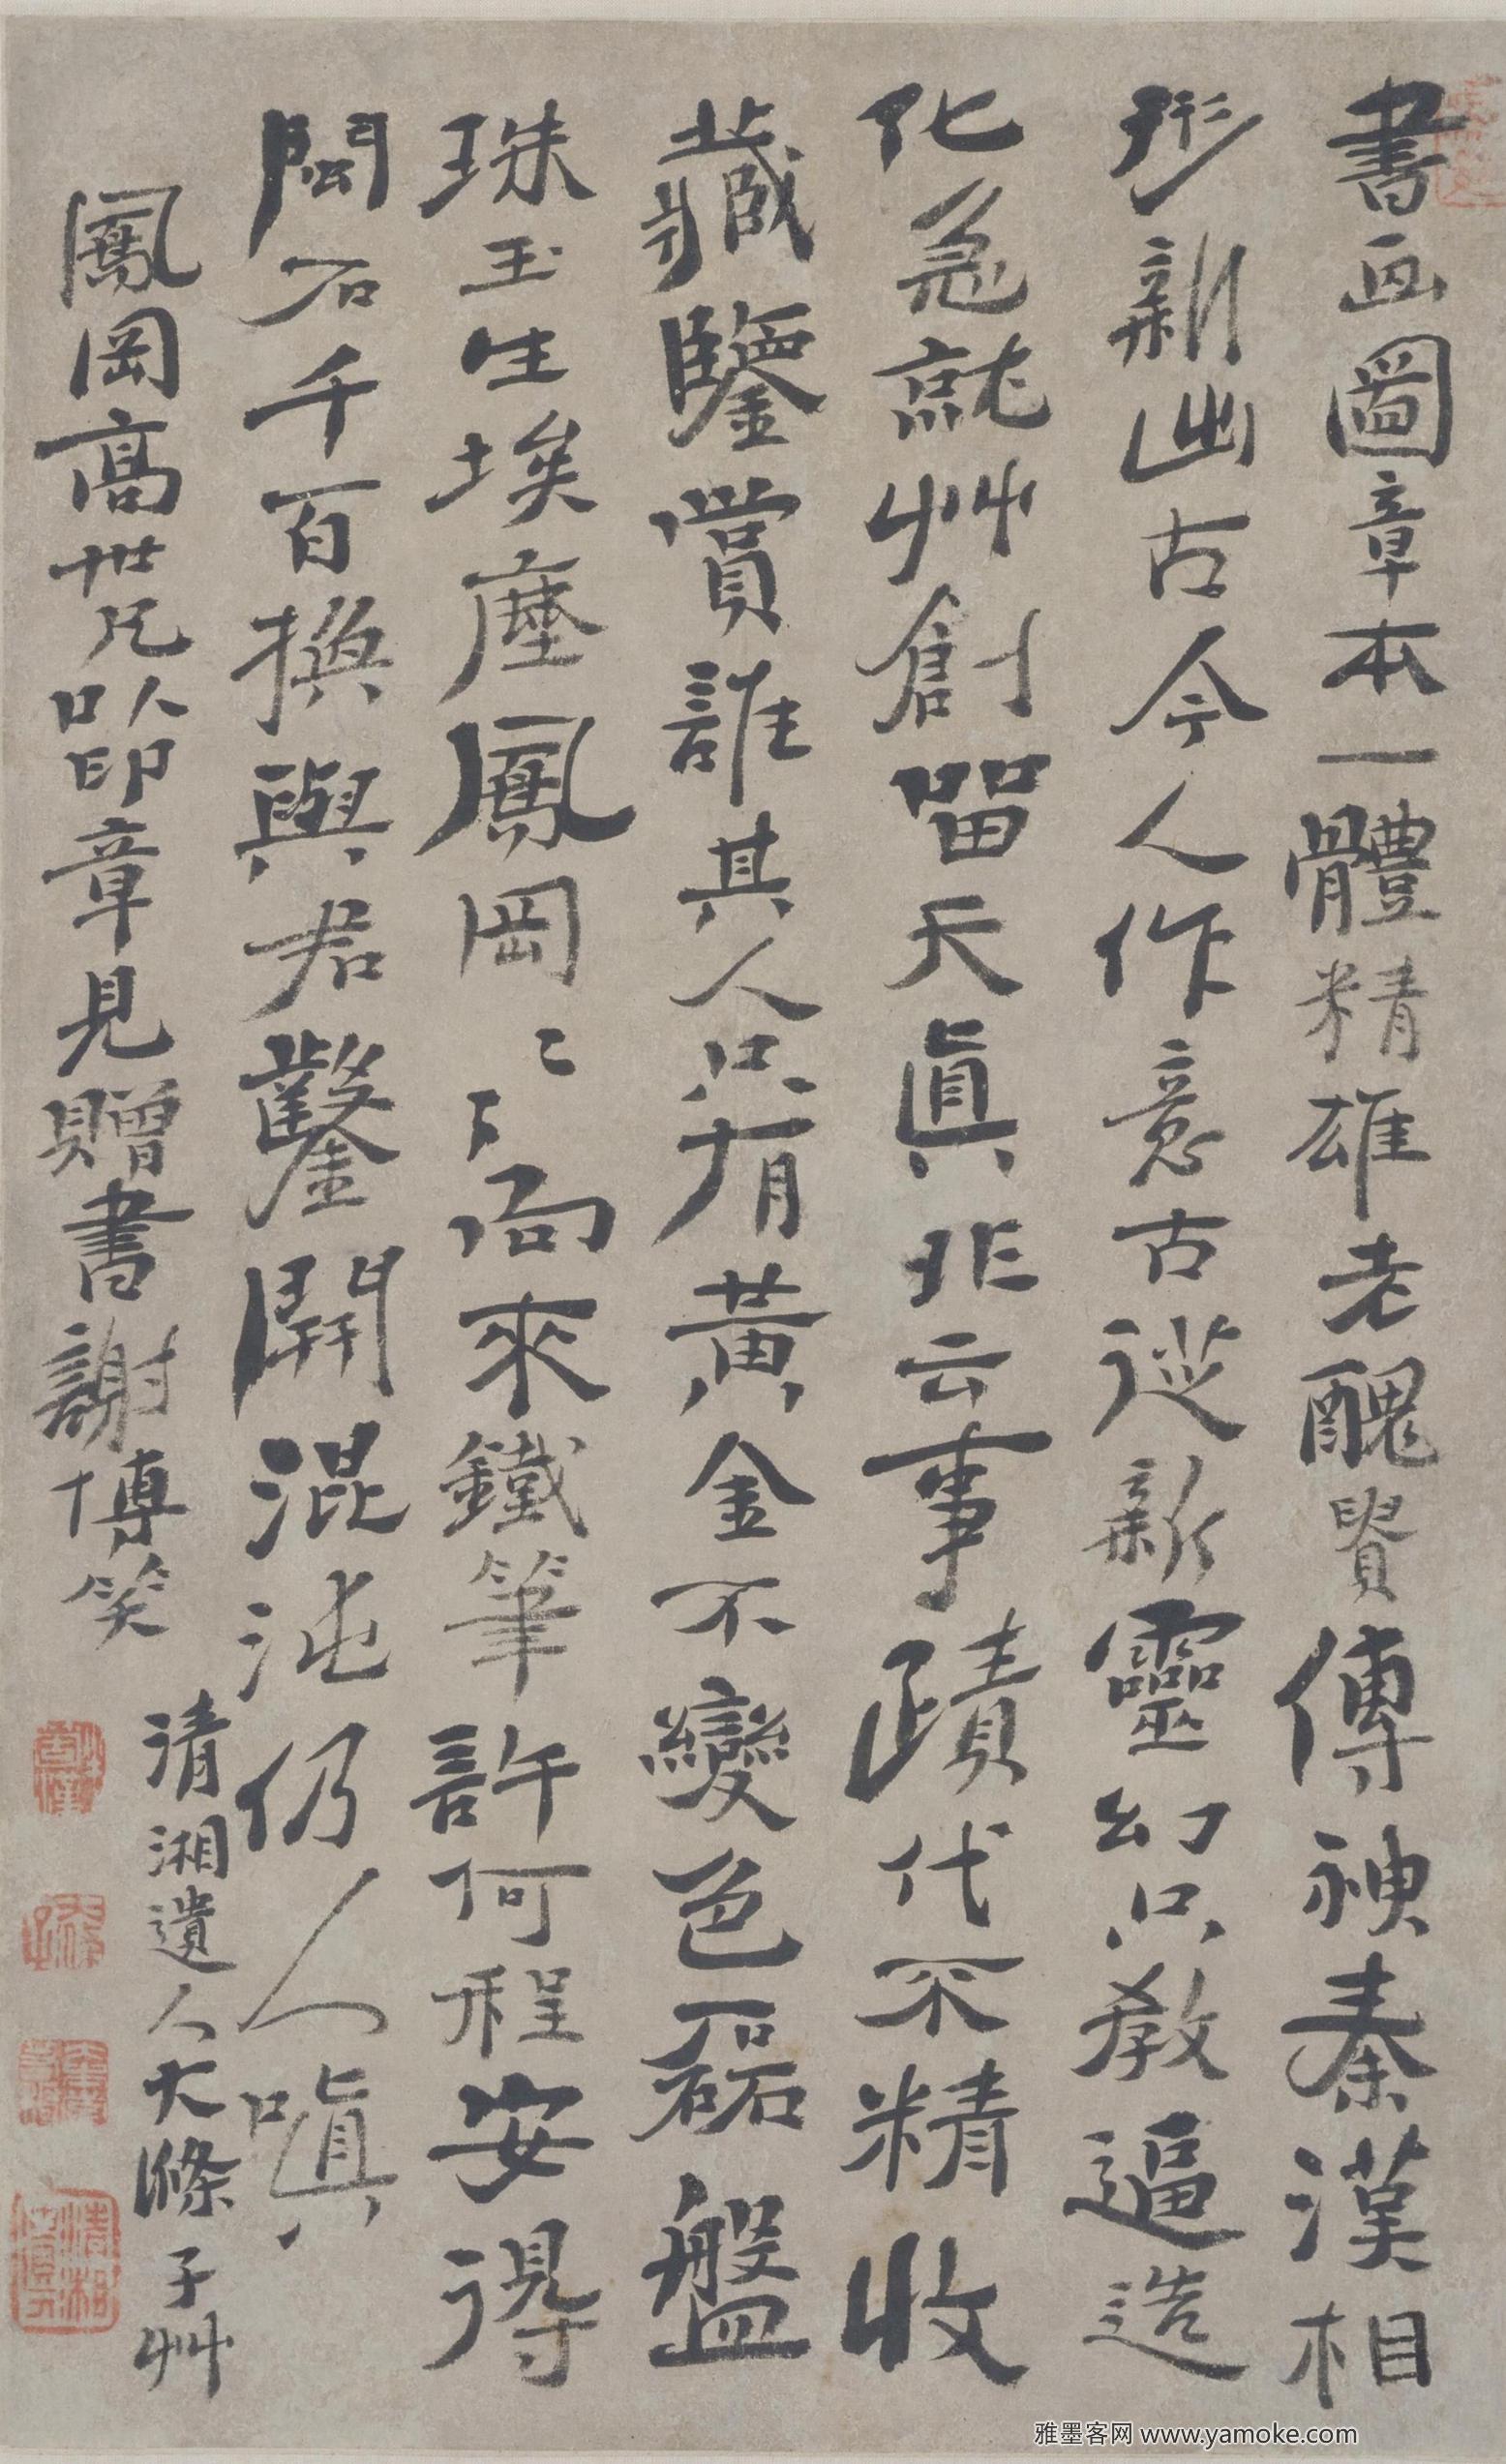 書画圖章本一體精雄老醜貴傳神秦漢相
形新出古今人作意古從新靈幻只教逼造
化急就艸創留天真非云事蹟代不精收
藏鑒賞誰其人只有黃金不變色磊盤
珠玉生埃塵鳳岡〻〻向來鐵筆許何程安得
閎石千百換與君鑿開混沌仍人嗔
鳳岡高世兄以印章見贈書謝博笑
清湘遺人大滌子艸
雅墨客网 www.yamoke.com